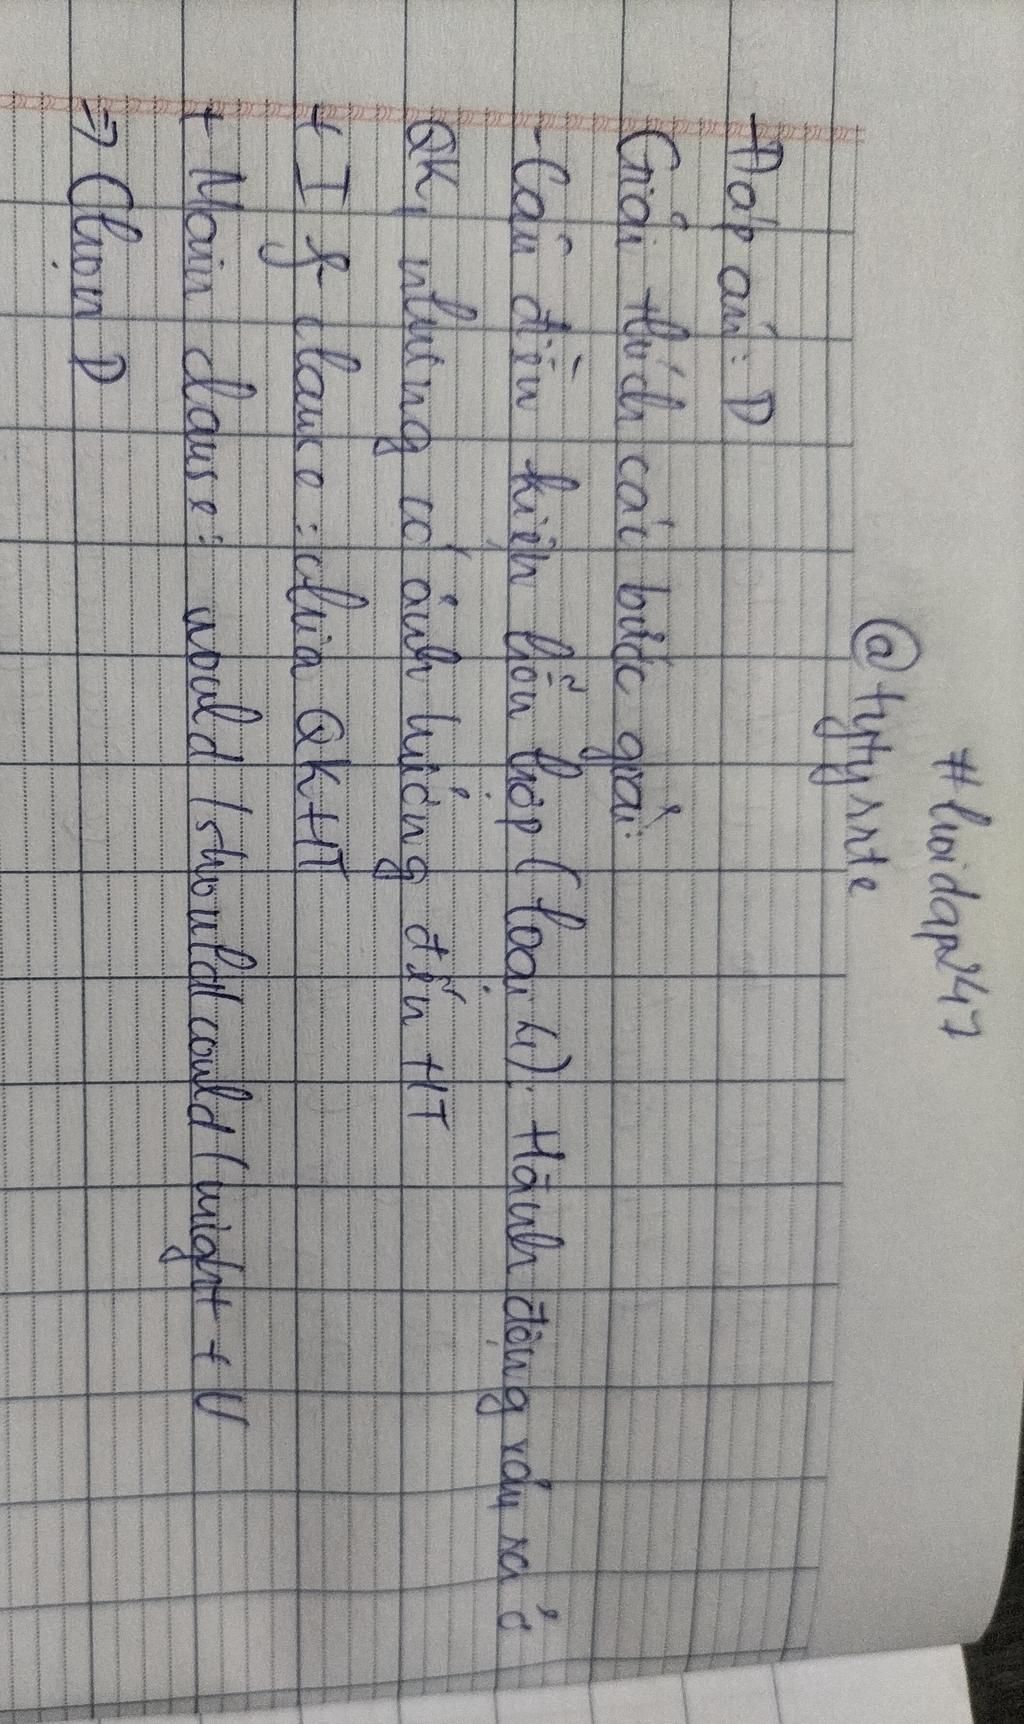 #hoidap247
@tytyrrte
Đáp án: D
Giải thích các bước giải:
- Câu điều kiện hỗn hợp (loại 4): Hành động xảy ra ở
QK, nhưng có ảnh hưởng đến HT
+ If clause: chia QKHT
+ Main clause: would / should / could / might + V
=> Chọn D